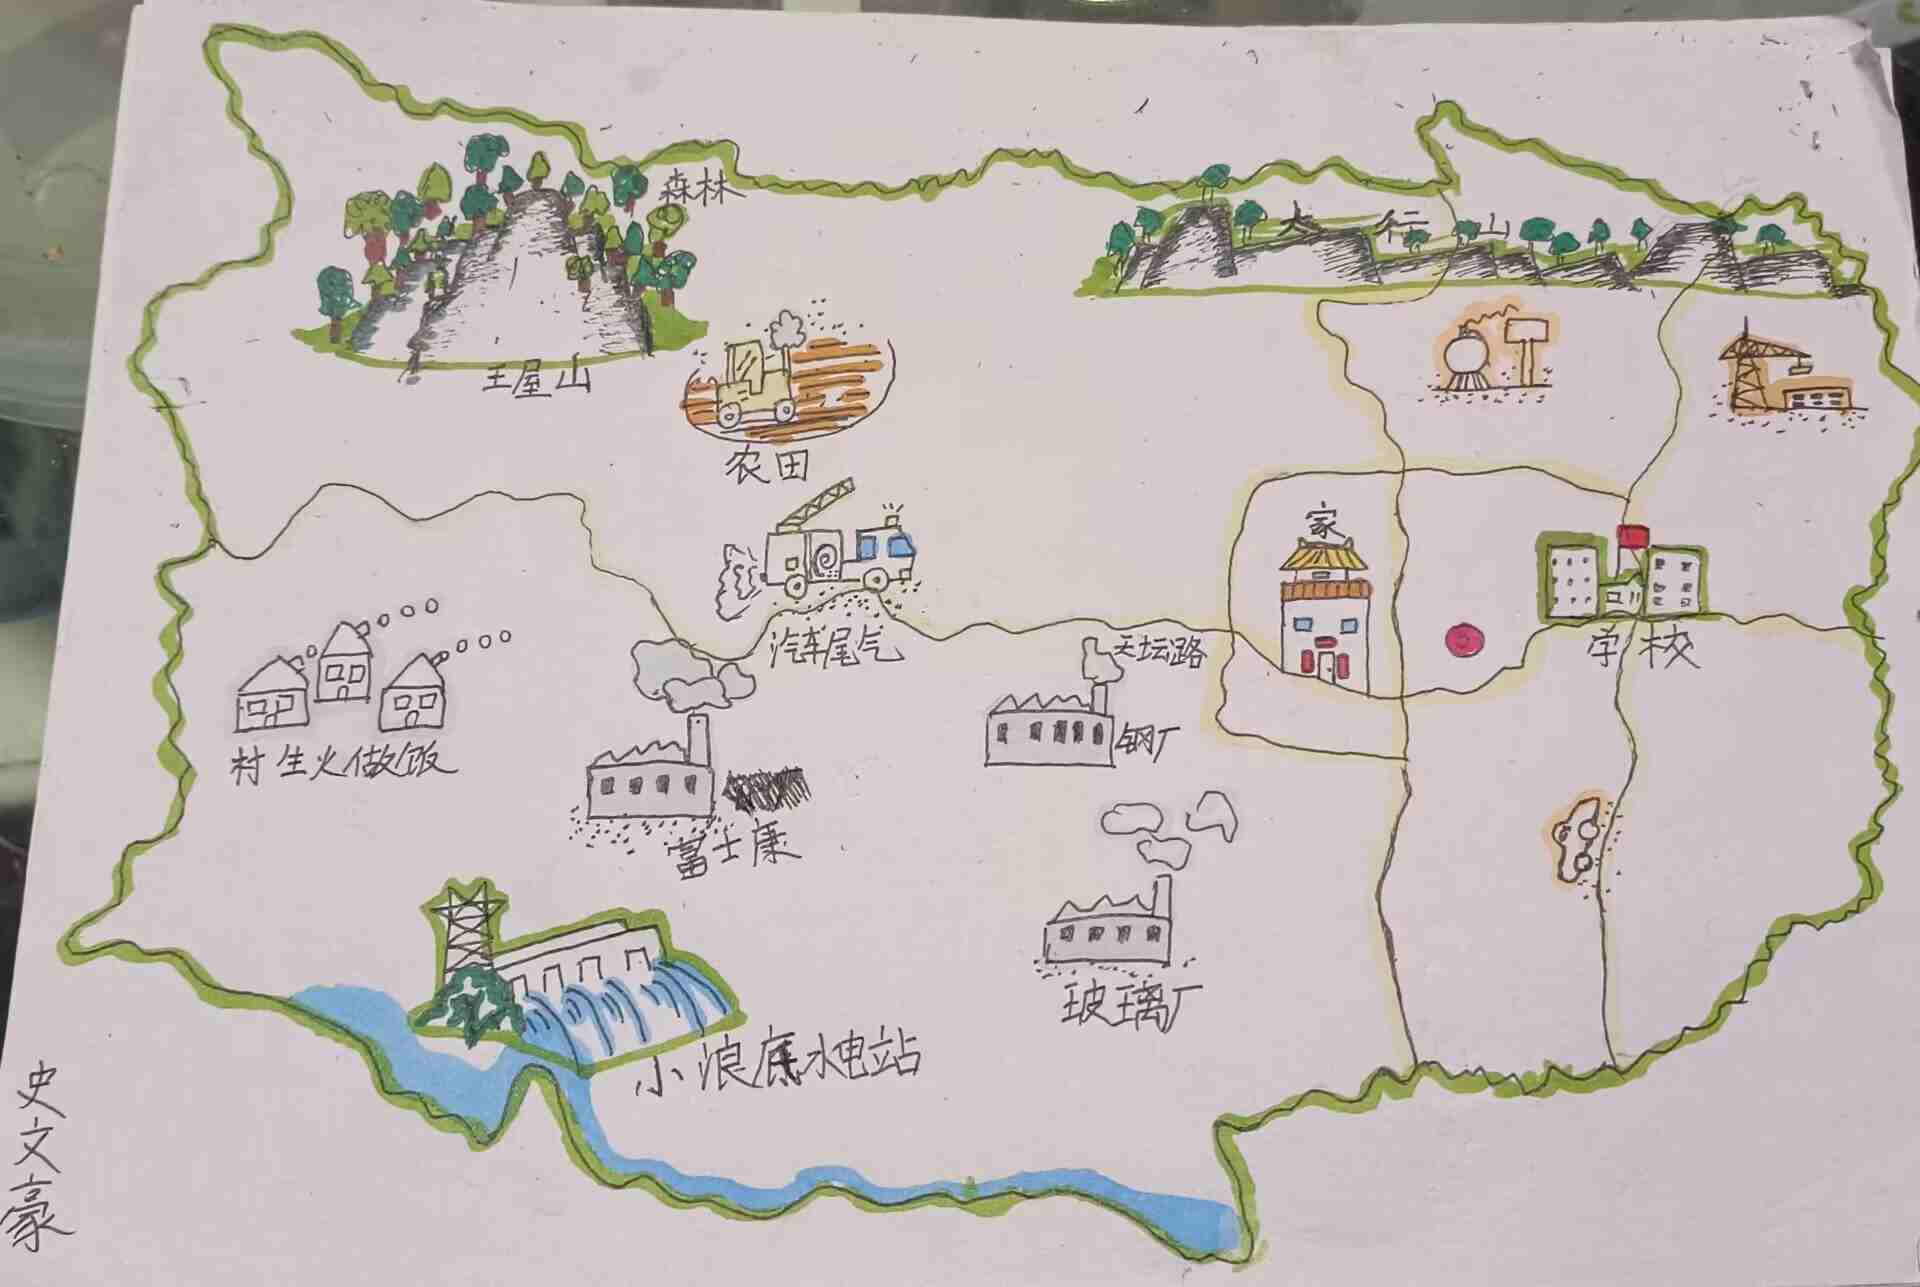 森林
太行山
王屋山
农田
家
汽车尾气
天坛路
学校
钢厂
村生火做饭
富士康
玻璃厂
小浪底水电站
史文豪